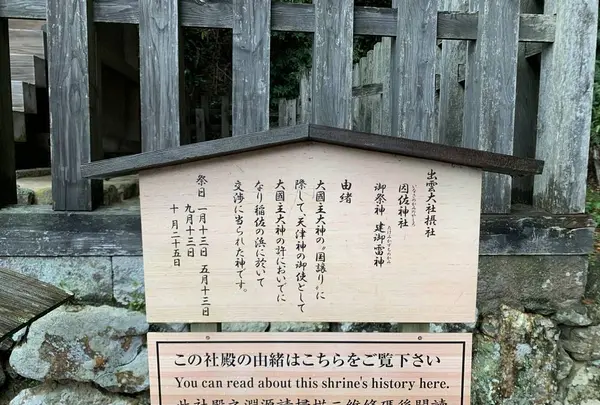 出雲大社摂社
因佐神社
いなさのかみのやしろ
御祭神 建御雷神
たけみかづちのかみ
由緒
大國主大神の"国譲り"に
際して、天津神の御使として
大國主大神の許においでに
なり稲佐の浜に於いて
交渉に当られた神です。
祭日 一月十三日 五月十三日
九月十三日
十月二十五日
この社殿の由緒はこちらをご覧下さい
You can read about this shrine's history here.